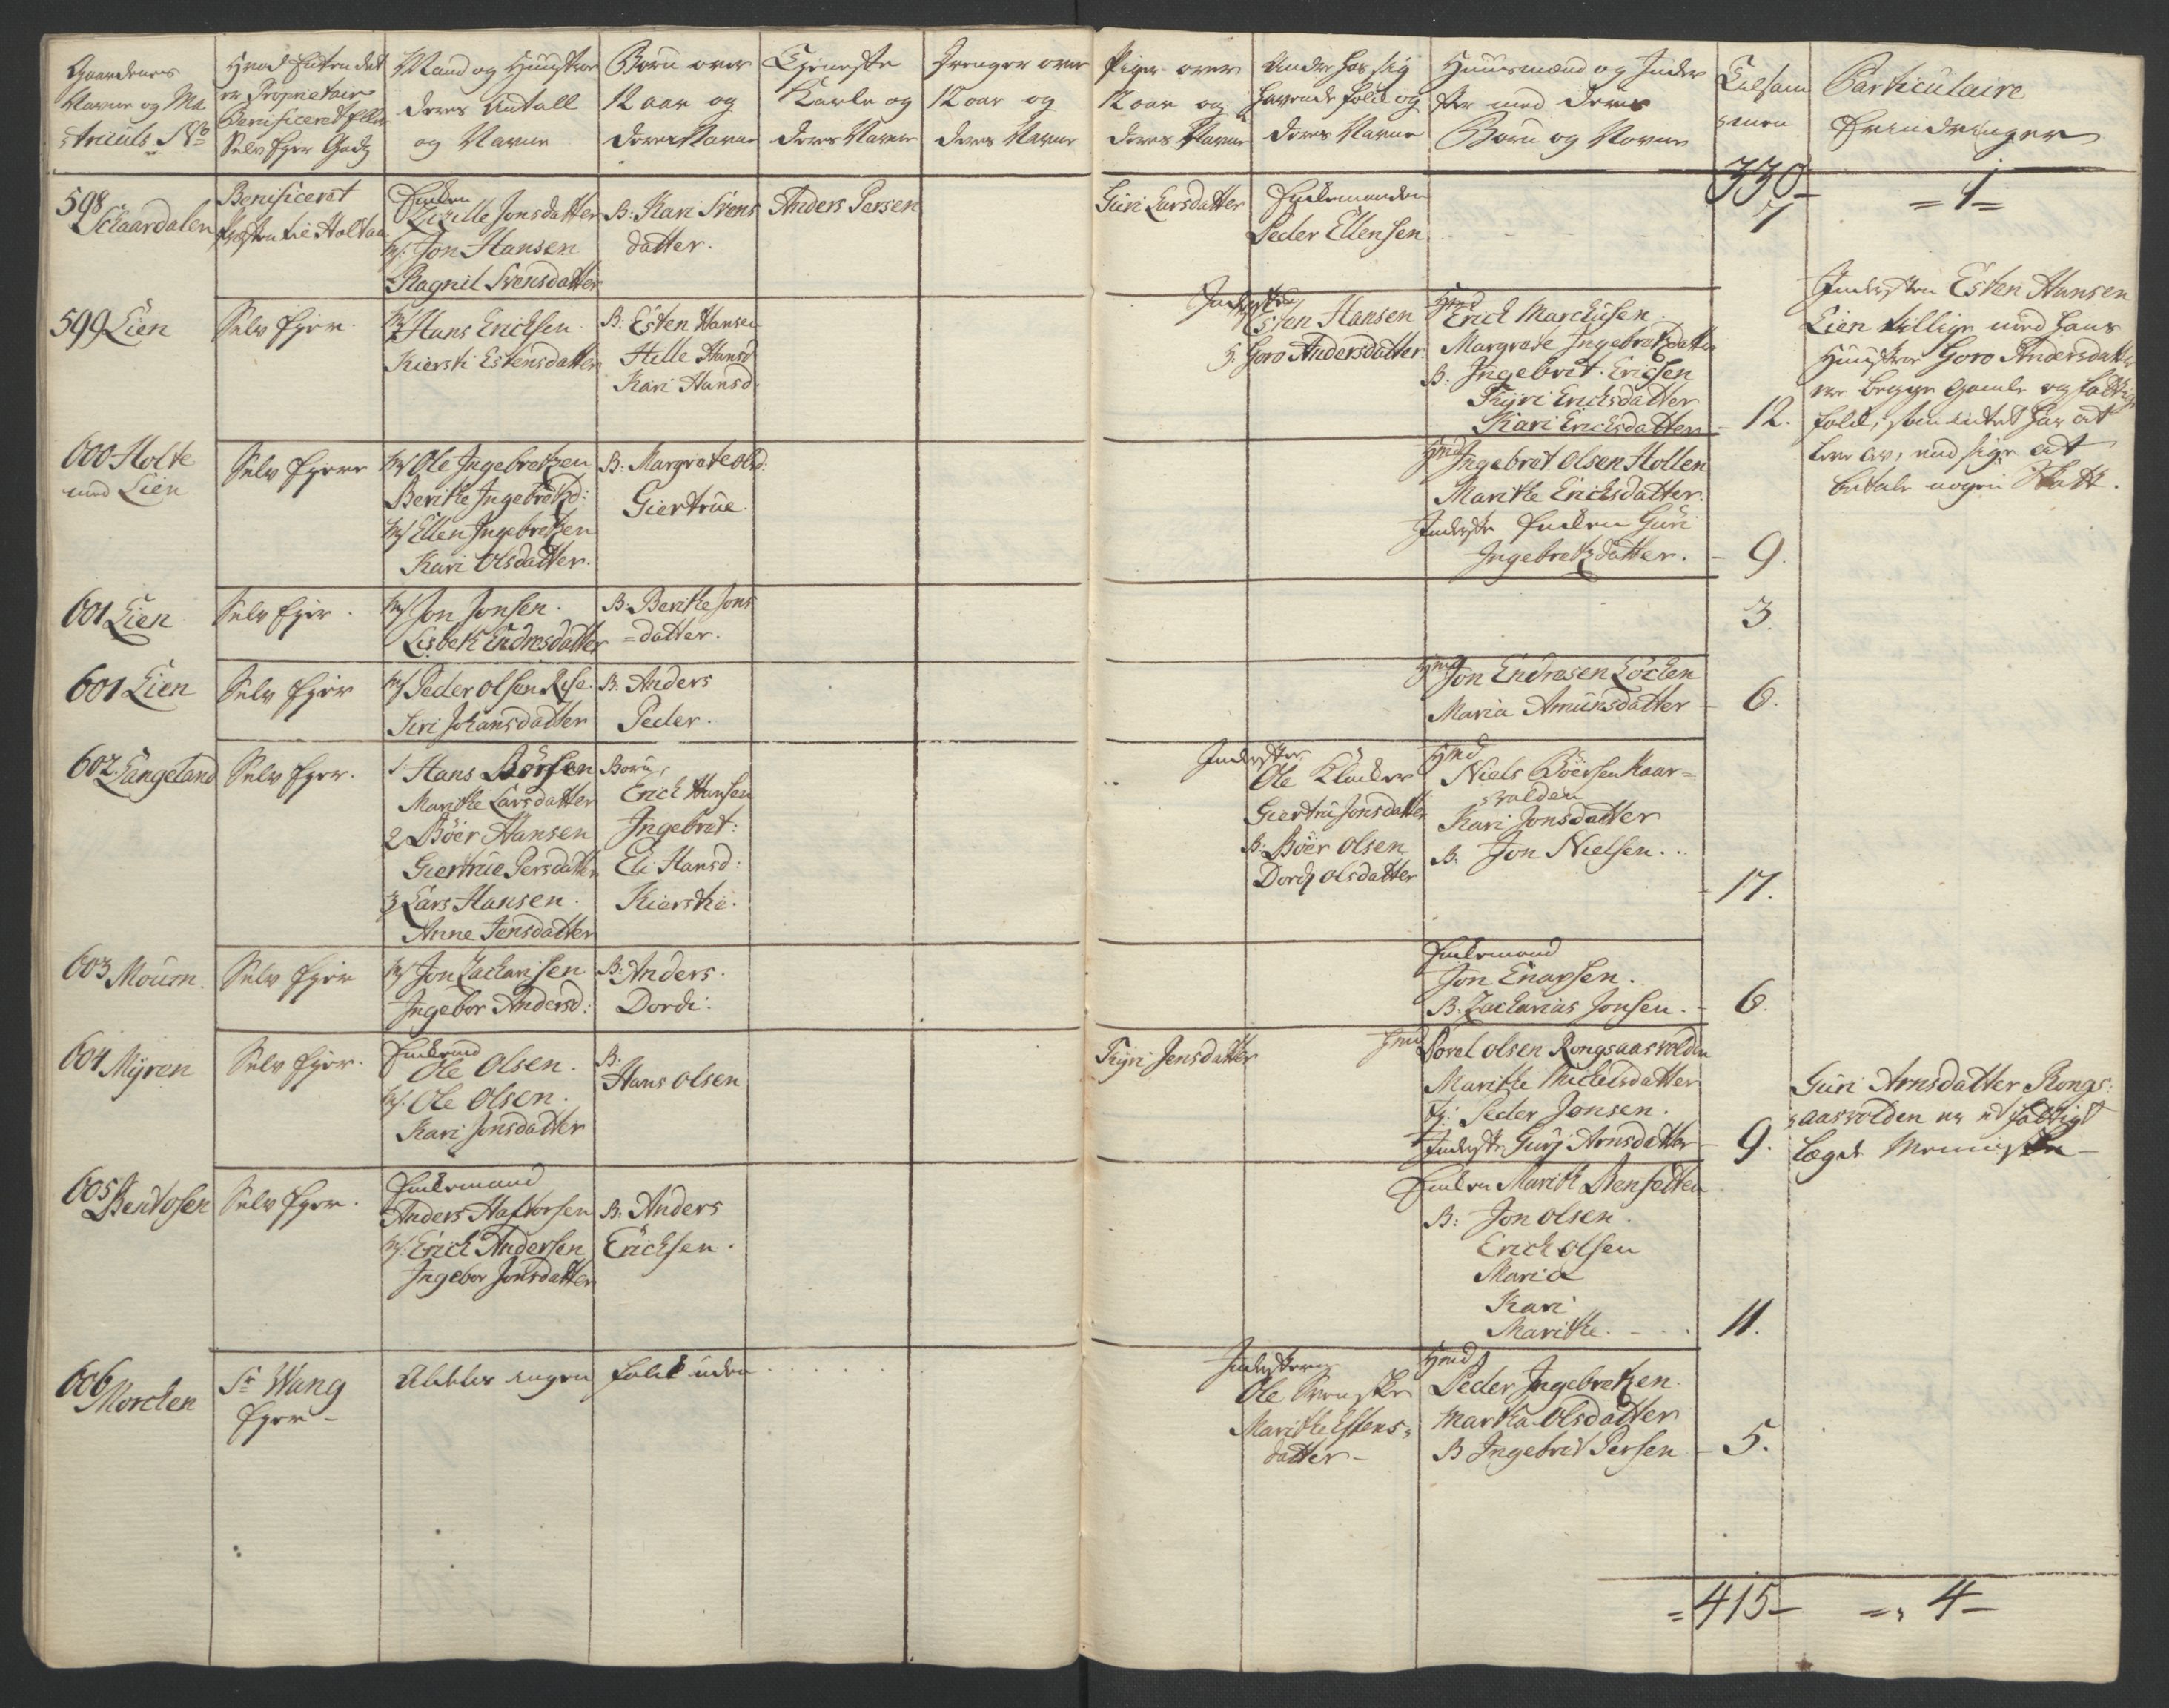 Gaardenes
Navne og Ma-
triculs No
Hvad heller det
er Proprietair
Benificeret eller
Selv Ejer Gods
Mand og Hustroe
deres Antall
og Navne
Børn over
12 aar og
deres Navne
Tieneste
Karle og
deres Navne
Drenger over
12 aar og
deres Navne
Piger over
12 aar og
deres Navne
Andre hos sig
havende folk og
deres Navne
Huusmænd og Inder-
ster med deres
Børn og Navne
Tilsam
menn
Particulaire
Erindringer
330
=1=
598
Schaardalen
Benificeret
Enken
Zizelle Jonsdatter
M: Jon Hansen
Ragnil Svensdatter
B: Kari Svens
datter.
Anders Persen
Guri Larsdatter
Enkemanden
Peder Ellensen
7
599 Lien
Selv Ejer.
M: Hans Erichsen
Kiersti Estensdatter
B: Esten Hansen
Hille Hansd
Kari Hansd.
Inderster
Esten Hansen
H: Goro Andersdatter
Hmd
Erich Marchusen.
Margrete Ingebretzdatter
B: Ingebret Ericsen
Tyri Erichsdatter
Kari Erichsdatter
12.
Indersten Esten Hansen
Lien tillige med hans
Hustroe Goro Andersdatter
er begge gamle og fattige
folk, som intet har at
leve av, end sige at
betale nogen Skatt.
600 Holte
med Lien
Selv Ejere
M: Ole Ingebretzen
Berithe Ingebretzd:
M: Ellen Ingebretzen
Kari Olsdatter.
B: Margrete Olsd:
Giertrue.
Hmd Ingebret Olsen Hollen
Marithe Erichsdatter.
Inderste Enken Guri
Ingebretzdatter.
9.
601 Lien
Selv Ejer.
M: Jon Jonsen.
Lisbeth Endresdatter
B: Berithe Jons
=datter.
3.
601 Lien
Selv Ejer
M: Peder Olsen Rise.
Siri Johansdatter
B: Anders
Peder.
Hmd Jon Endresen Løchen
Maria Amunsdatter
6.
602 Langeland
Selv Ejer.
1 Hans Børsen
Marithe Larsdatter
2 Böer Hansen
Giertrue Persdatter
3 Lars Hansen.
Anne Jensdatter
Børn,
Erich Hansen
Ingebret:
Eli Hansd:
Kierstie.
Inderster,
Ole Klucker
Giertru Jonsdatter
B: Böer Olsen
Dordj Olsdatter
Hmd
Niels Böersen Kaar=
svolden
Kari Jonsdatter
B: Jon Nielsen...
17.
603 Moum.
Selv Ejer
M: Jon Zacharisen
Ingebor Andersd:
B: Anders.
Dordi.
Enkemand
Jon Enarsen.
B. Zacharias Jonsen.
6.
604 Myren
Selv Ejer.
Enkemd
Ole Olsen.
M: Ole Olsen.
Kari Jonsdatter
B.
Hans Olsen
Tyri Jensdatter
Hmd Povel Olsen Rongsaasvolden
Marithe Michelsdatter
Tj: Peder Jonsen.
Inderste Gurj Arnsdatter
9.
Guri Arnsdatter Rongs-
aasvolden er et fattigt
Lægde Menniske
605 Bentosen
Selv Ejer.
Enkemand
Anders Haftorsen
M: Erich Andersen
Ingebor Jonsdatter
B: Anders
Erichsen.
Enken Marith Bensetten
B: Jon Olsen.
Erich Olsen
Maria
Kari
Marithe.
11.
606
Morchen
Sr Wang
Ejer
ingen folk uden . . . . .
Inderstene
Ole Svenske
Marithe Estens=
datter
Hmd
Peder Ingebretzen.
Martha Olsdatter
B Ingebret Persen
5.
=415—
=„ 4—